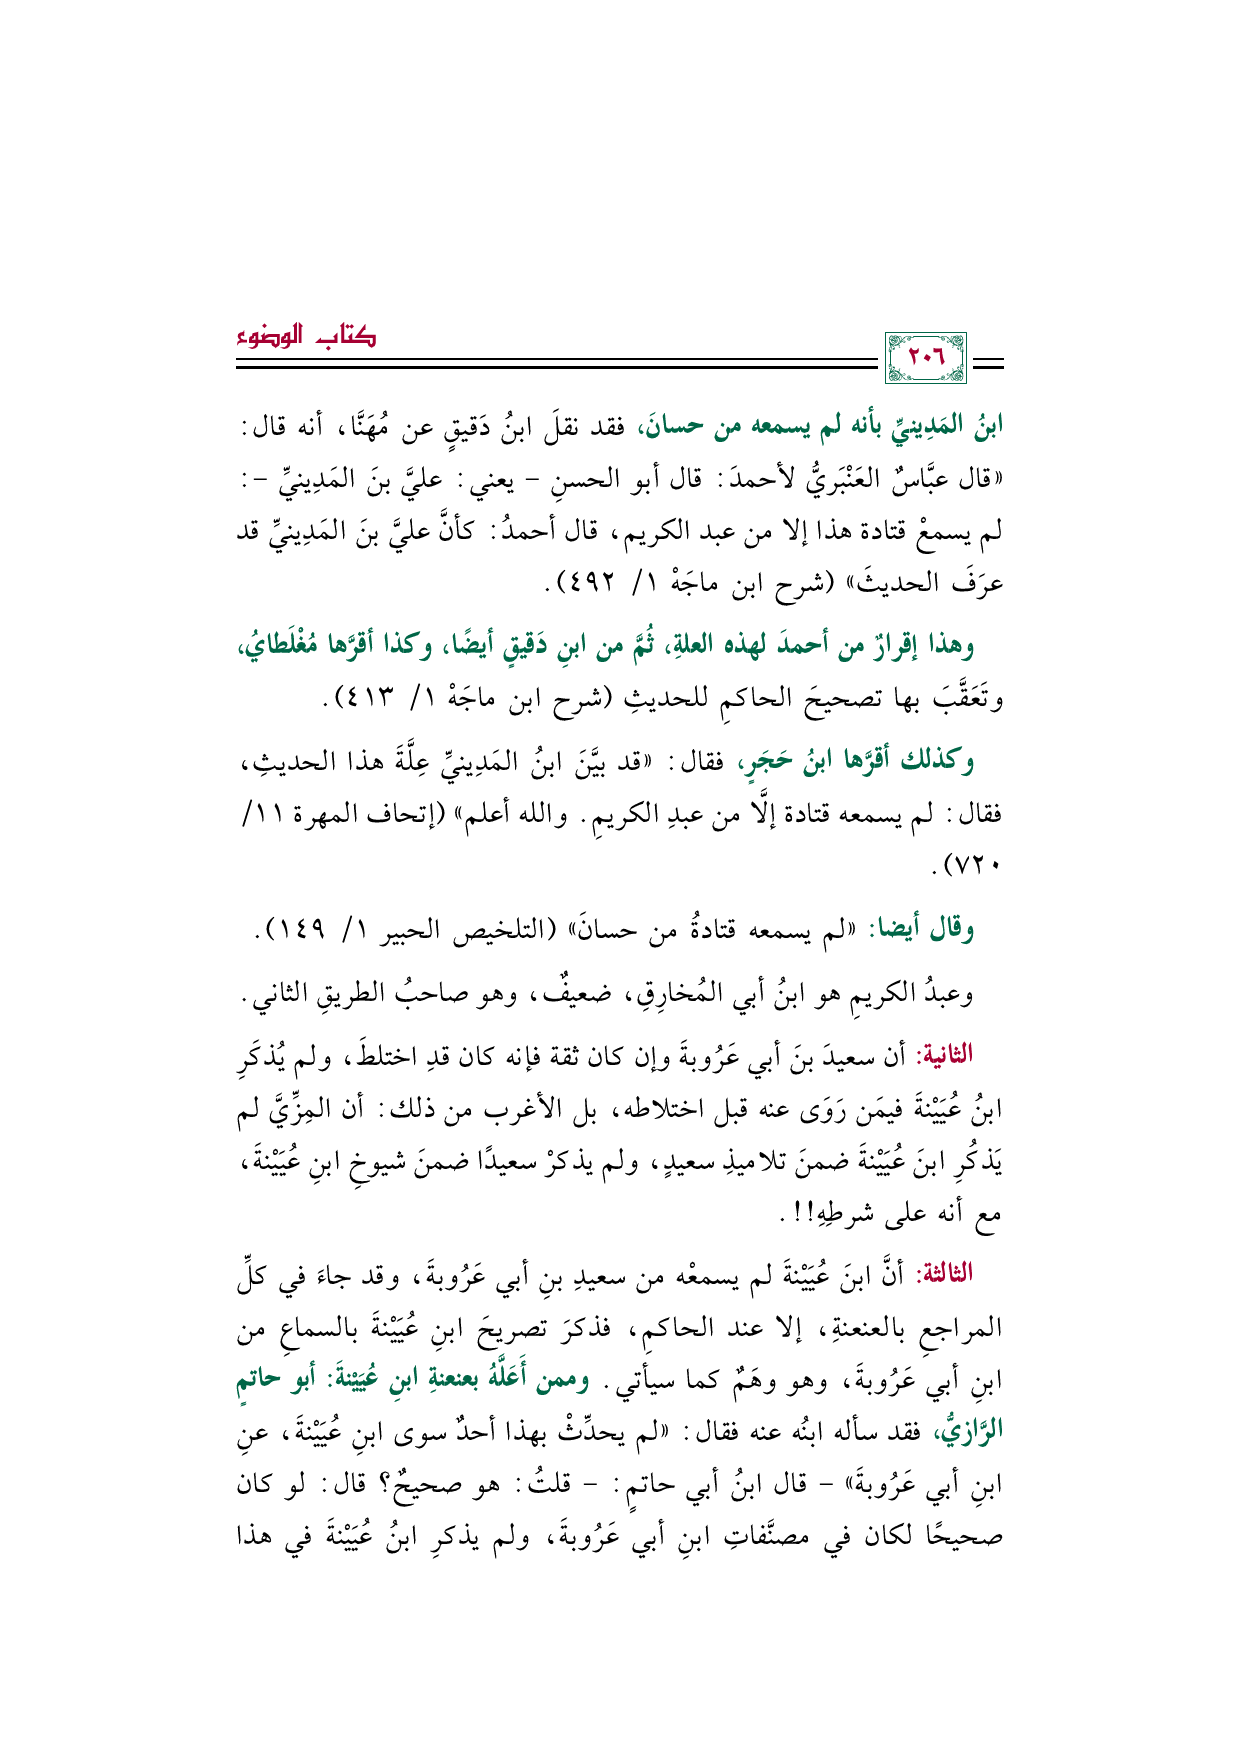 كتاب الوضوء
٢٠٦
ابنُ المَدِينيِّ بأنه لم يسمعه من حسانَ، فقد نقلَ ابنُ دَقيقٍ عن مُهَنَّا، أنه قال:
«قال عبَّاسٌ العَنْبَريُّ لأحمدَ: قال أبو الحسنِ – يعني: عليَّ بنَ المَدِينيِّ –:
لم يسمعْ قتادة هذا إلا من عبد الكريم، قال أحمدُ: كأنَّ عليَّ بنَ المَدِينيِّ قد
عرَفَ الحديثَ» (شرح ابن ماجَهْ ١/ ٤٩٢).
وهذا إقرارٌ من أحمدَ لهذه العلةِ، ثُمَّ من ابنِ دَقيقٍ أيضًا، وكذا أقرَّها مُغْلَطايُ،
وتَعَقَّبَ بها تصحيحَ الحاكمِ للحديثِ (شرح ابن ماجَهْ ١/ ٤١٣).
وكذلك أقرَّها ابنُ حَجَرٍ، فقال: «قد بيَّنَ ابنُ المَدِينيِّ عِلَّةَ هذا الحديثِ،
فقال: لم يسمعه قتادة إلَّا من عبدِ الكريمِ. والله أعلم» (إتحاف المهرة ١١/
٧٢٠).
وقال أيضا: «لم يسمعه قتادةُ من حسانَ» (التلخيص الحبير ١/ ١٤٩).
وعبدُ الكريمِ هو ابنُ أبي المُخارِقِ، ضعيفٌ، وهو صاحبُ الطريقِ الثاني.
الثانية: أن سعيدَ بنَ أبي عَرُوبةَ وإن كان ثقة فإنه كان قدِ اختلطَ، ولم يُذكَرِ
ابنُ عُيَيْنةَ فيمَن رَوَى عنه قبل اختلاطه، بل الأغرب من ذلك: أن المِزِّيَّ لم
يَذكُرِ ابنَ عُيَيْنةَ ضمنَ تلاميذِ سعيدٍ، ولم يذكرْ سعيدًا ضمنَ شيوخِ ابنِ عُيَيْنةَ،
مع أنه على شرطِهِ!!.
الثالثة: أنَّ ابنَ عُيَيْنةَ لم يسمعْه من سعيدِ بنِ أبي عَرُوبةَ، وقد جاءَ في كلِّ
المراجعِ بالعنعنةِ، إلا عند الحاكمِ، فذكرَ تصريحَ ابنِ عُيَيْنةَ بالسماعِ من
ابنِ أبي عَرُوبةَ، وهو وهَمٌ كما سيأتي. وممن أَعَلَّهُ بعنعنةِ ابنِ عُيَيْنةَ: أبو حاتمٍ
الرَّازيُّ، فقد سأله ابنُه عنه فقال: «لم يحدِّثْ بهذا أحدٌ سوى ابنِ عُيَيْنةَ، عنِ
ابنِ أبي عَرُوبةَ» – قال ابنُ أبي حاتمٍ: – قلتُ: هو صحيحٌ؟ قال: لو كان
صحيحًا لكان في مصنَّفاتِ ابنِ أبي عَرُوبةَ، ولم يذكرِ ابنُ عُيَيْنةَ في هذا